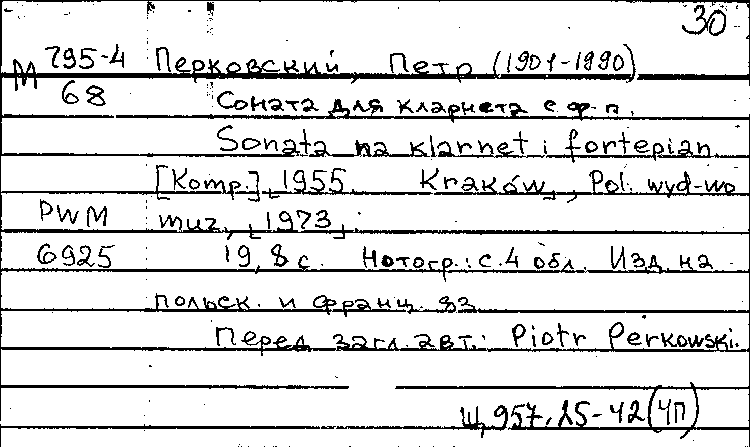 30
М 795-4 Перковский, Петр (1901-1990)
68 Соната для кларнета с ф-п.
Sonata na klarnet i fortepian
[Komp.] 1955. Kraków, Pol. wyd-wo
PWM muz., [1973].
6925 19, 8 с. Нотогр.: с. 4 обл. Изд. на
польск. и франц. яз.
Перед загл. авт.: Piotr Perkowski.
Щ, 957, 25-42 (ЧП)